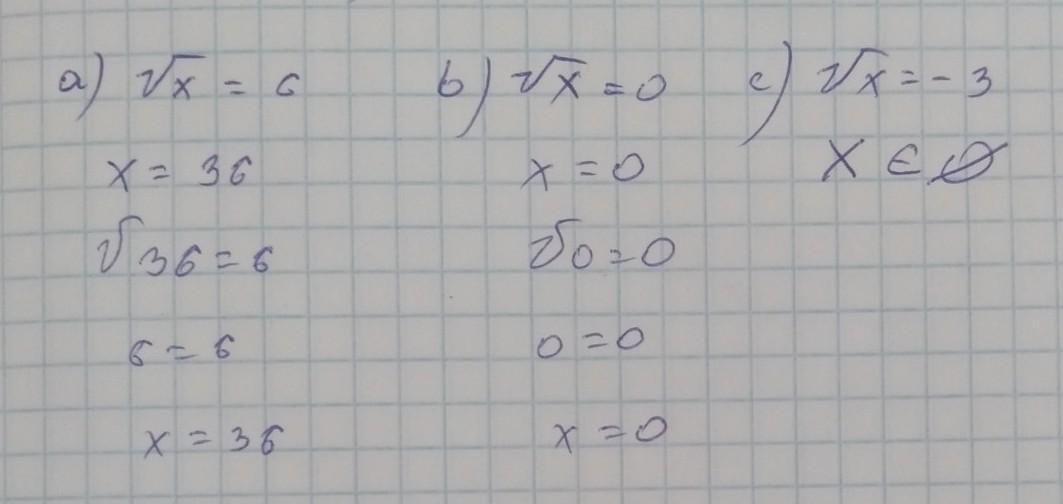 a) √x = 6
x = 36
√36 = 6
6 = 6
x = 36
b) √x = 0
x = 0
√0 = 0
0 = 0
x = 0
c) √x = - 3
x ∈ ∅